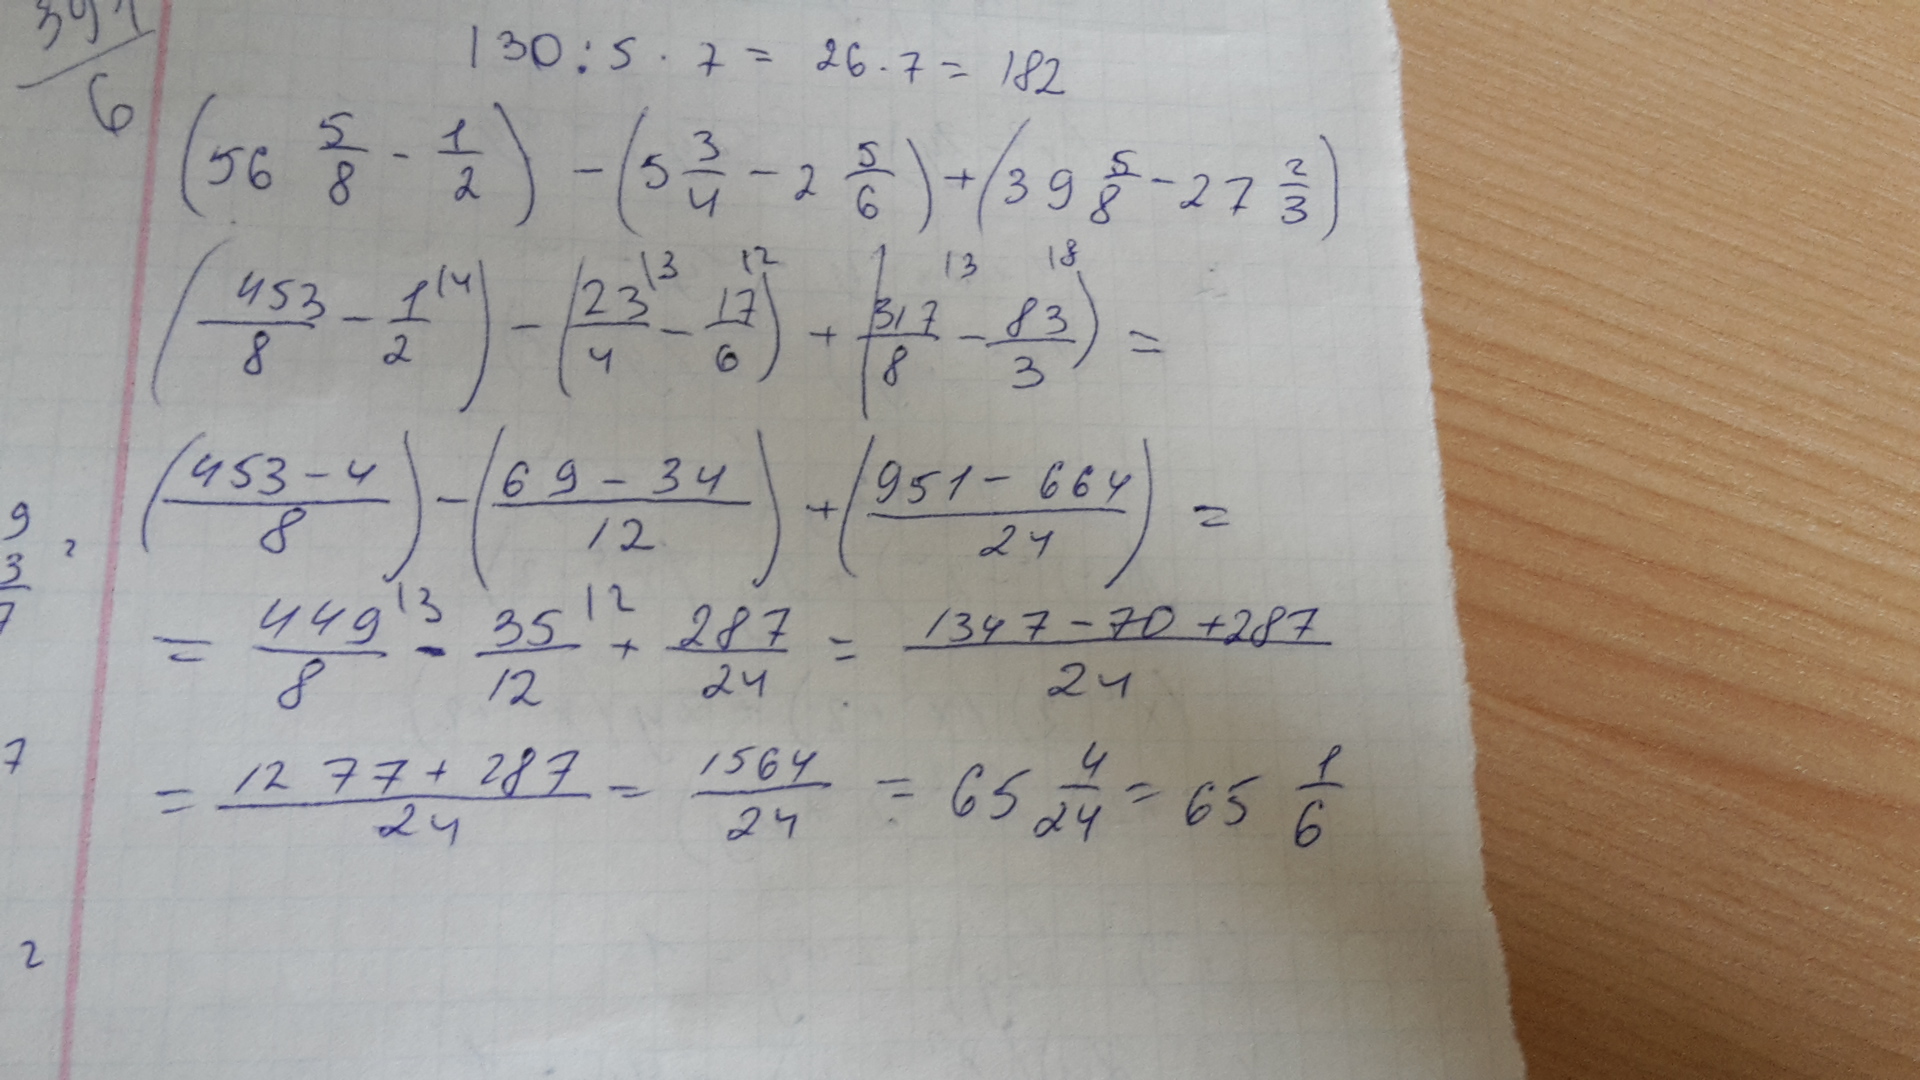 391/6
130 : 5 · 7 = 26 · 7 = 182
(56 5/8 - 1/2) - (5 3/4 - 2 5/6) + (39 5/8 - 27 2/3)
(453/8 - 1/2 |4) - (23/4 |3 - 17/6 |2) + (317/8 |3 - 83/3 |8) =
((453 - 4)/8) - ((69 - 34)/12) + ((951 - 664)/24) =
= 449/8 |3 - 35/12 |2 + 287/24 = (1347 - 70 + 287)/24
= (1277 + 287)/24 = 1564/24 = 65 4/24 = 65 1/6
9
3/7
7
2